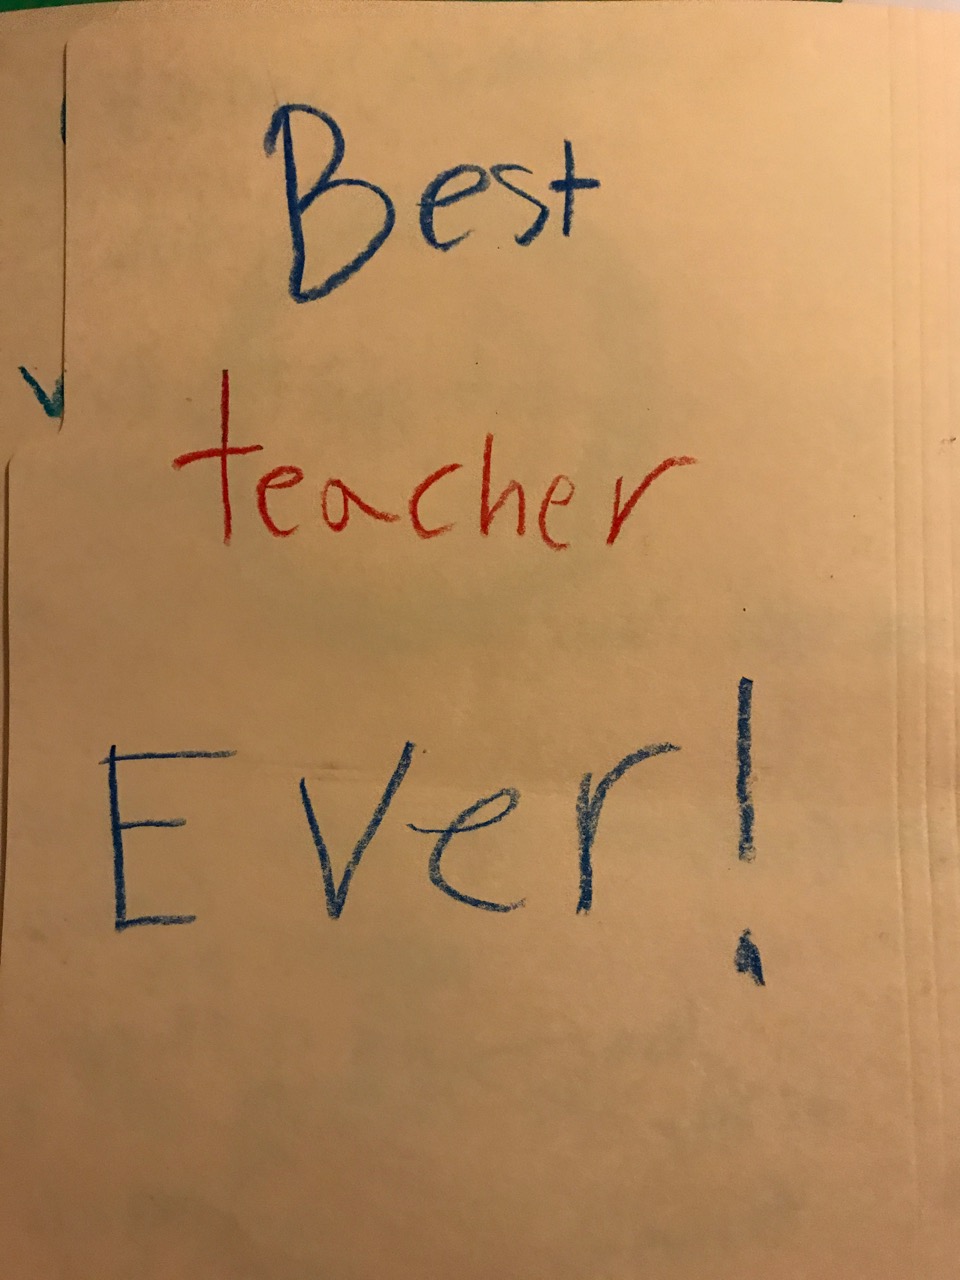 Best
teacher
Ever!